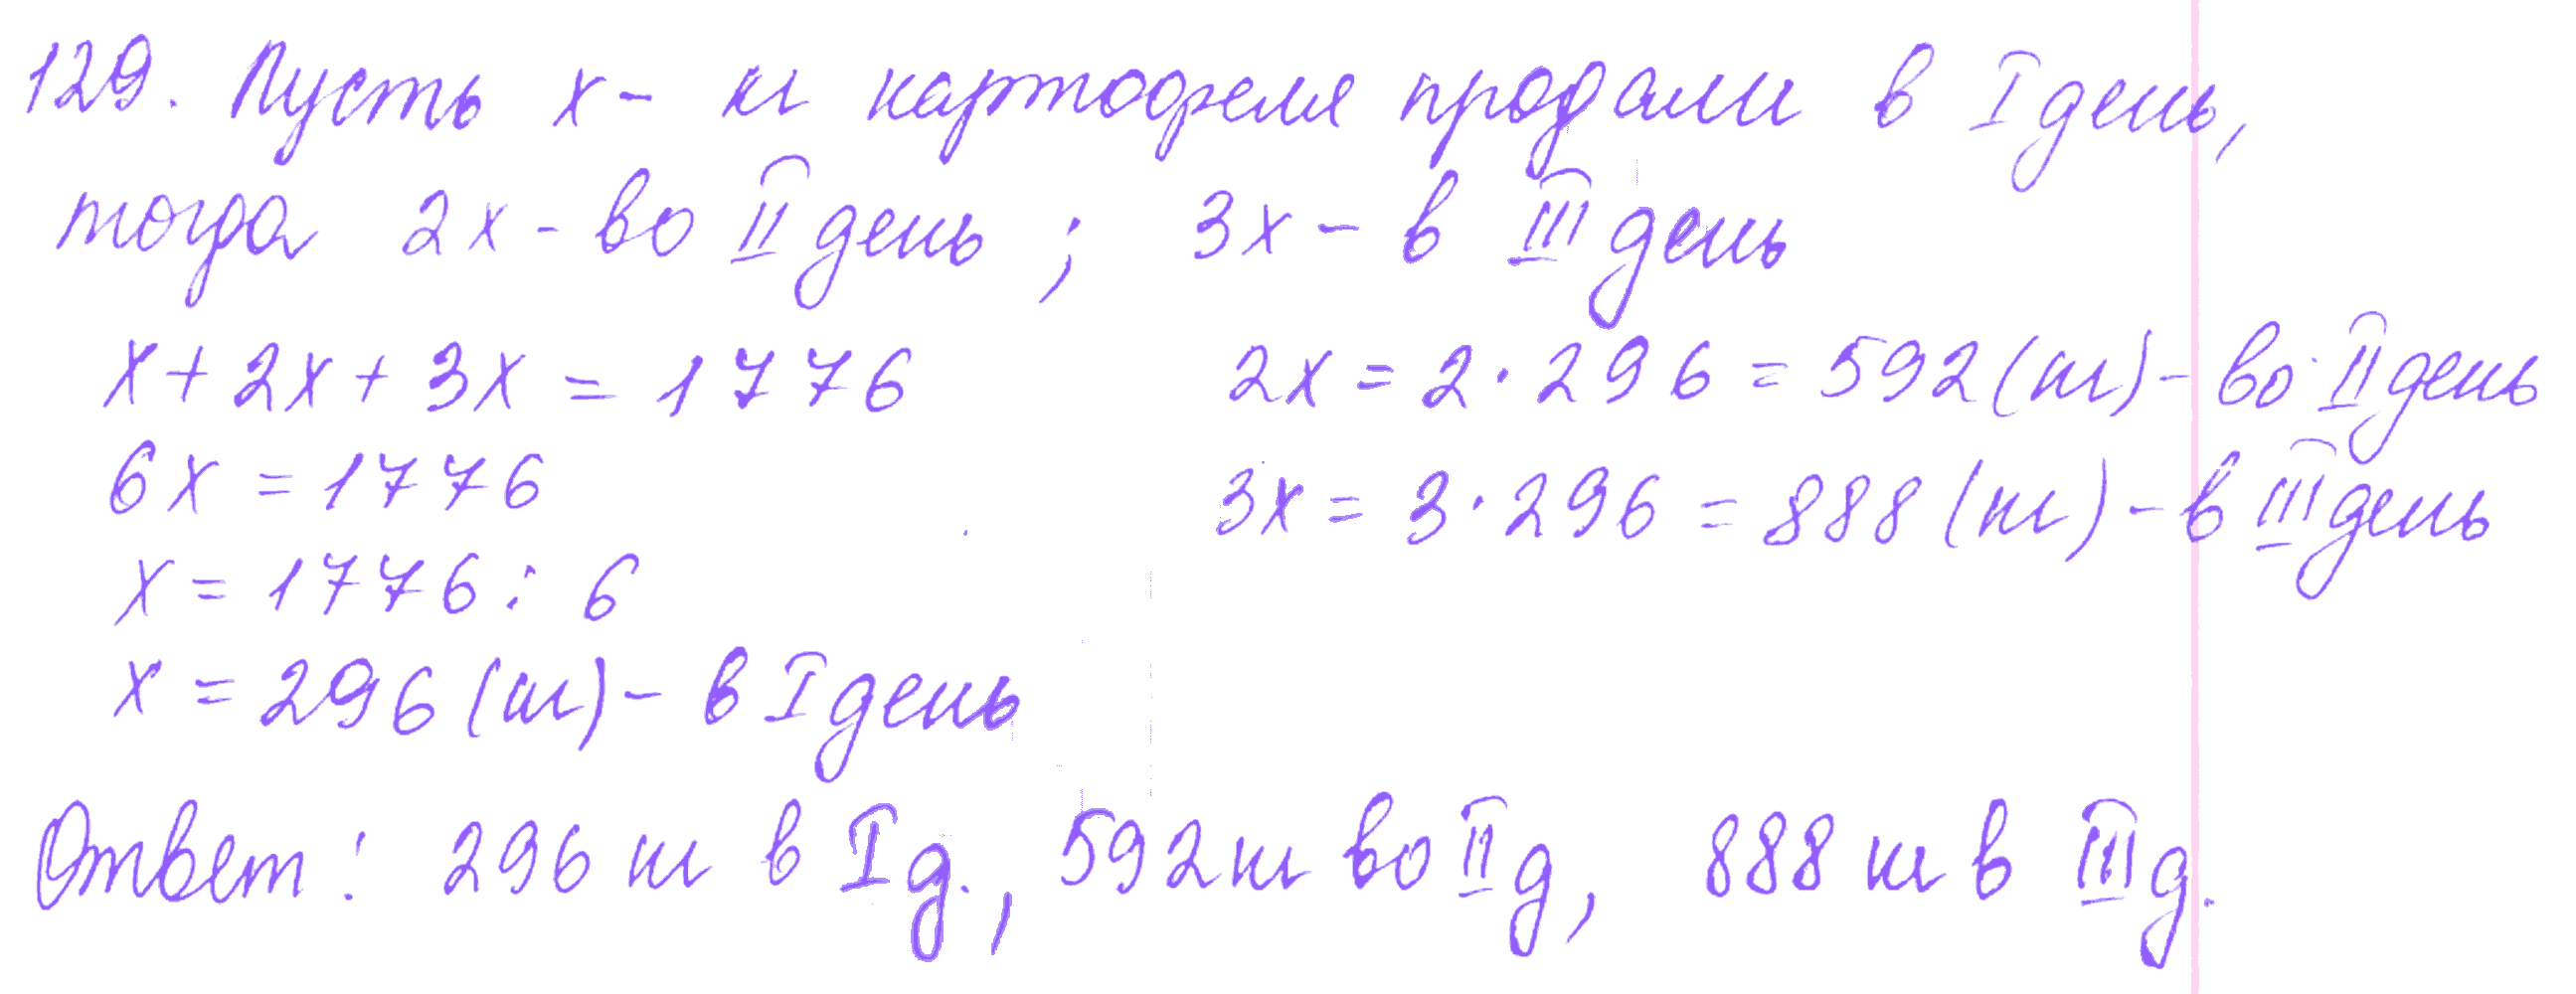 129. Пусть x - кг картофеля продали в I день,
тогда 2x - во II день ; 3x - в III день
x + 2x + 3x = 1776
6x = 1776
x = 1776 : 6
x = 296 (кг) - в I день
2x = 2 · 296 = 592 (кг) - во II день
3x = 3 · 296 = 888 (кг) - в III день
Ответ: 296 кг в I д., 592 кг во II д, 888 кг в III д.